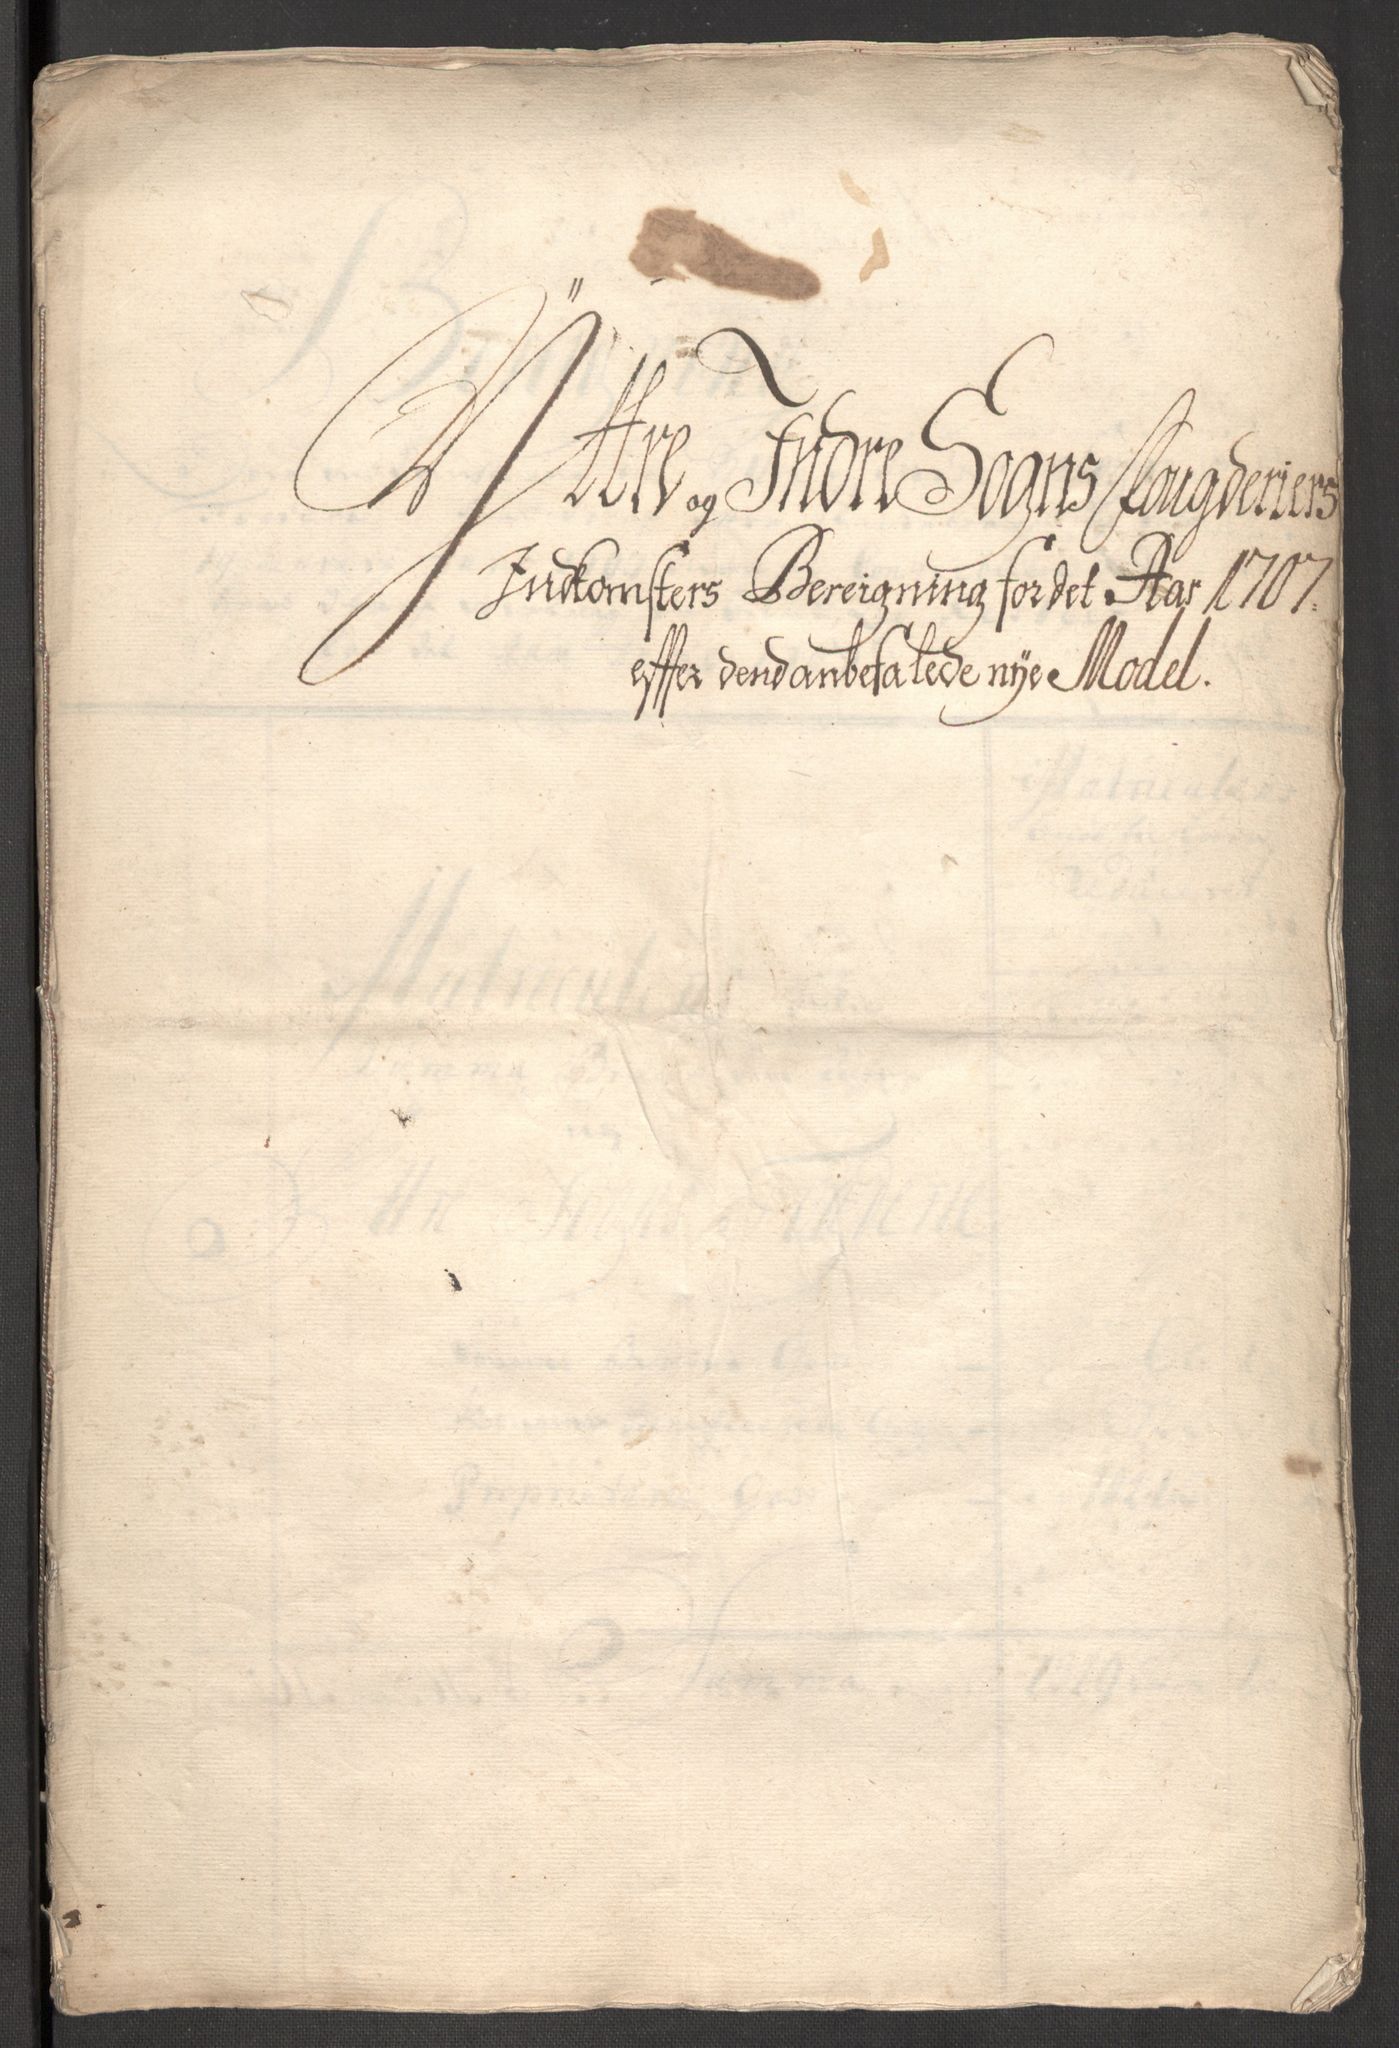 Ÿttre og Indre Sogns fougderiers
Indkomsters Bereigning for det Aar 1707.
effter dend anbefalede nye Model.